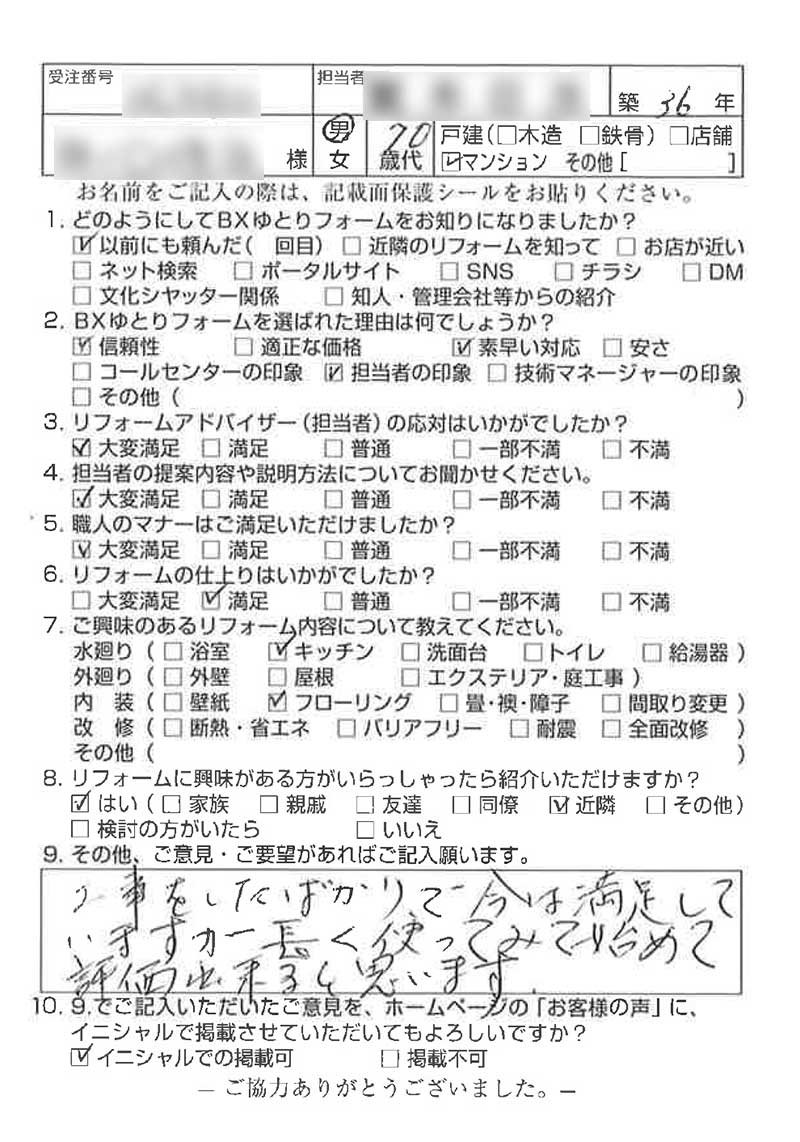 受注番号 担当者 築 36 年
様 男 女 70 歳代 戸建(□木造 □鉄骨) □店舗
☑マンション その他 [ ]
お名前をご記入の際は、記載面保護シールをお貼りください。
1. どのようにしてBXゆとりフォームをお知りになりましたか?
☑以前にも頼んだ( 回目) □近隣のリフォームを知って □お店が近い
□ネット検索 □ポータルサイト □SNS □チラシ □DM
□文化シヤッター関係 □知人・管理会社等からの紹介
2. BXゆとりフォームを選ばれた理由は何でしょうか?
☑信頼性 □適正な価格 ☑素早い対応 □安さ
□コールセンターの印象 ☑担当者の印象 □技術マネージャーの印象
□その他 ( )
3. リフォームアドバイザー(担当者)の応対はいかがでしたか?
☑大変満足 □満足 □普通 □一部不満 □不満
4. 担当者の提案内容や説明方法についてお聞かせください。
☑大変満足 □満足 □普通 □一部不満 □不満
5. 職人のマナーはご満足いただけましたか?
☑大変満足 □満足 □普通 □一部不満 □不満
6. リフォームの仕上りはいかがでしたか?
□大変満足 ☑満足 □普通 □一部不満 □不満
7. ご興味のあるリフォーム内容について教えてください。
水廻り ( □浴室 ☑キッチン □洗面台 □トイレ □給湯器 )
外廻り ( □外壁 □屋根 □エクステリア・庭工事 )
内 装 ( □壁紙 ☑フローリング □畳・襖・障子 □間取り変更 )
改 修 ( □断熱・省エネ □バリアフリー □耐震 □全面改修 )
その他 ( )
8. リフォームに興味がある方がいらっしゃったら紹介いただけますか?
☑はい ( □家族 □親戚 □友達 □同僚 ☑近隣 □その他)
□検討の方がいたら □いいえ
9. その他、ご意見・ご要望があればご記入願います。
工事をしたばかりで今は満足して
いますが長く使ってみて始めて
評価出来ると思います.
10. 9.でご記入いただいたご意見を、ホームページの「お客様の声」に、
イニシャルで掲載させていただいてもよろしいですか?
☑イニシャルでの掲載可 □掲載不可
― ご協力ありがとうございました。―